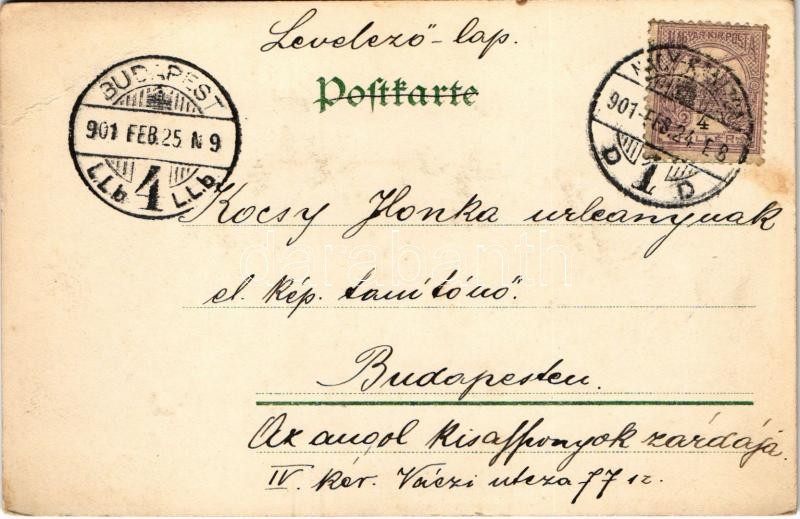 Levelező-lap.
Postkarte
MAGYAR KIR. POSTA
BUDAPEST
901 FEB.25 N 9
4
L.L.b. L.L.b.
NAGY-K
4
901-FEB.24-E 8
D 1 D
Kocsy Ilonka urleanynak
darabanth
el. kép. tanítónő.
Budapesten.
Az angol kisasszonyok zárdája.
IV. ker. Váczi utcza 77 sz.